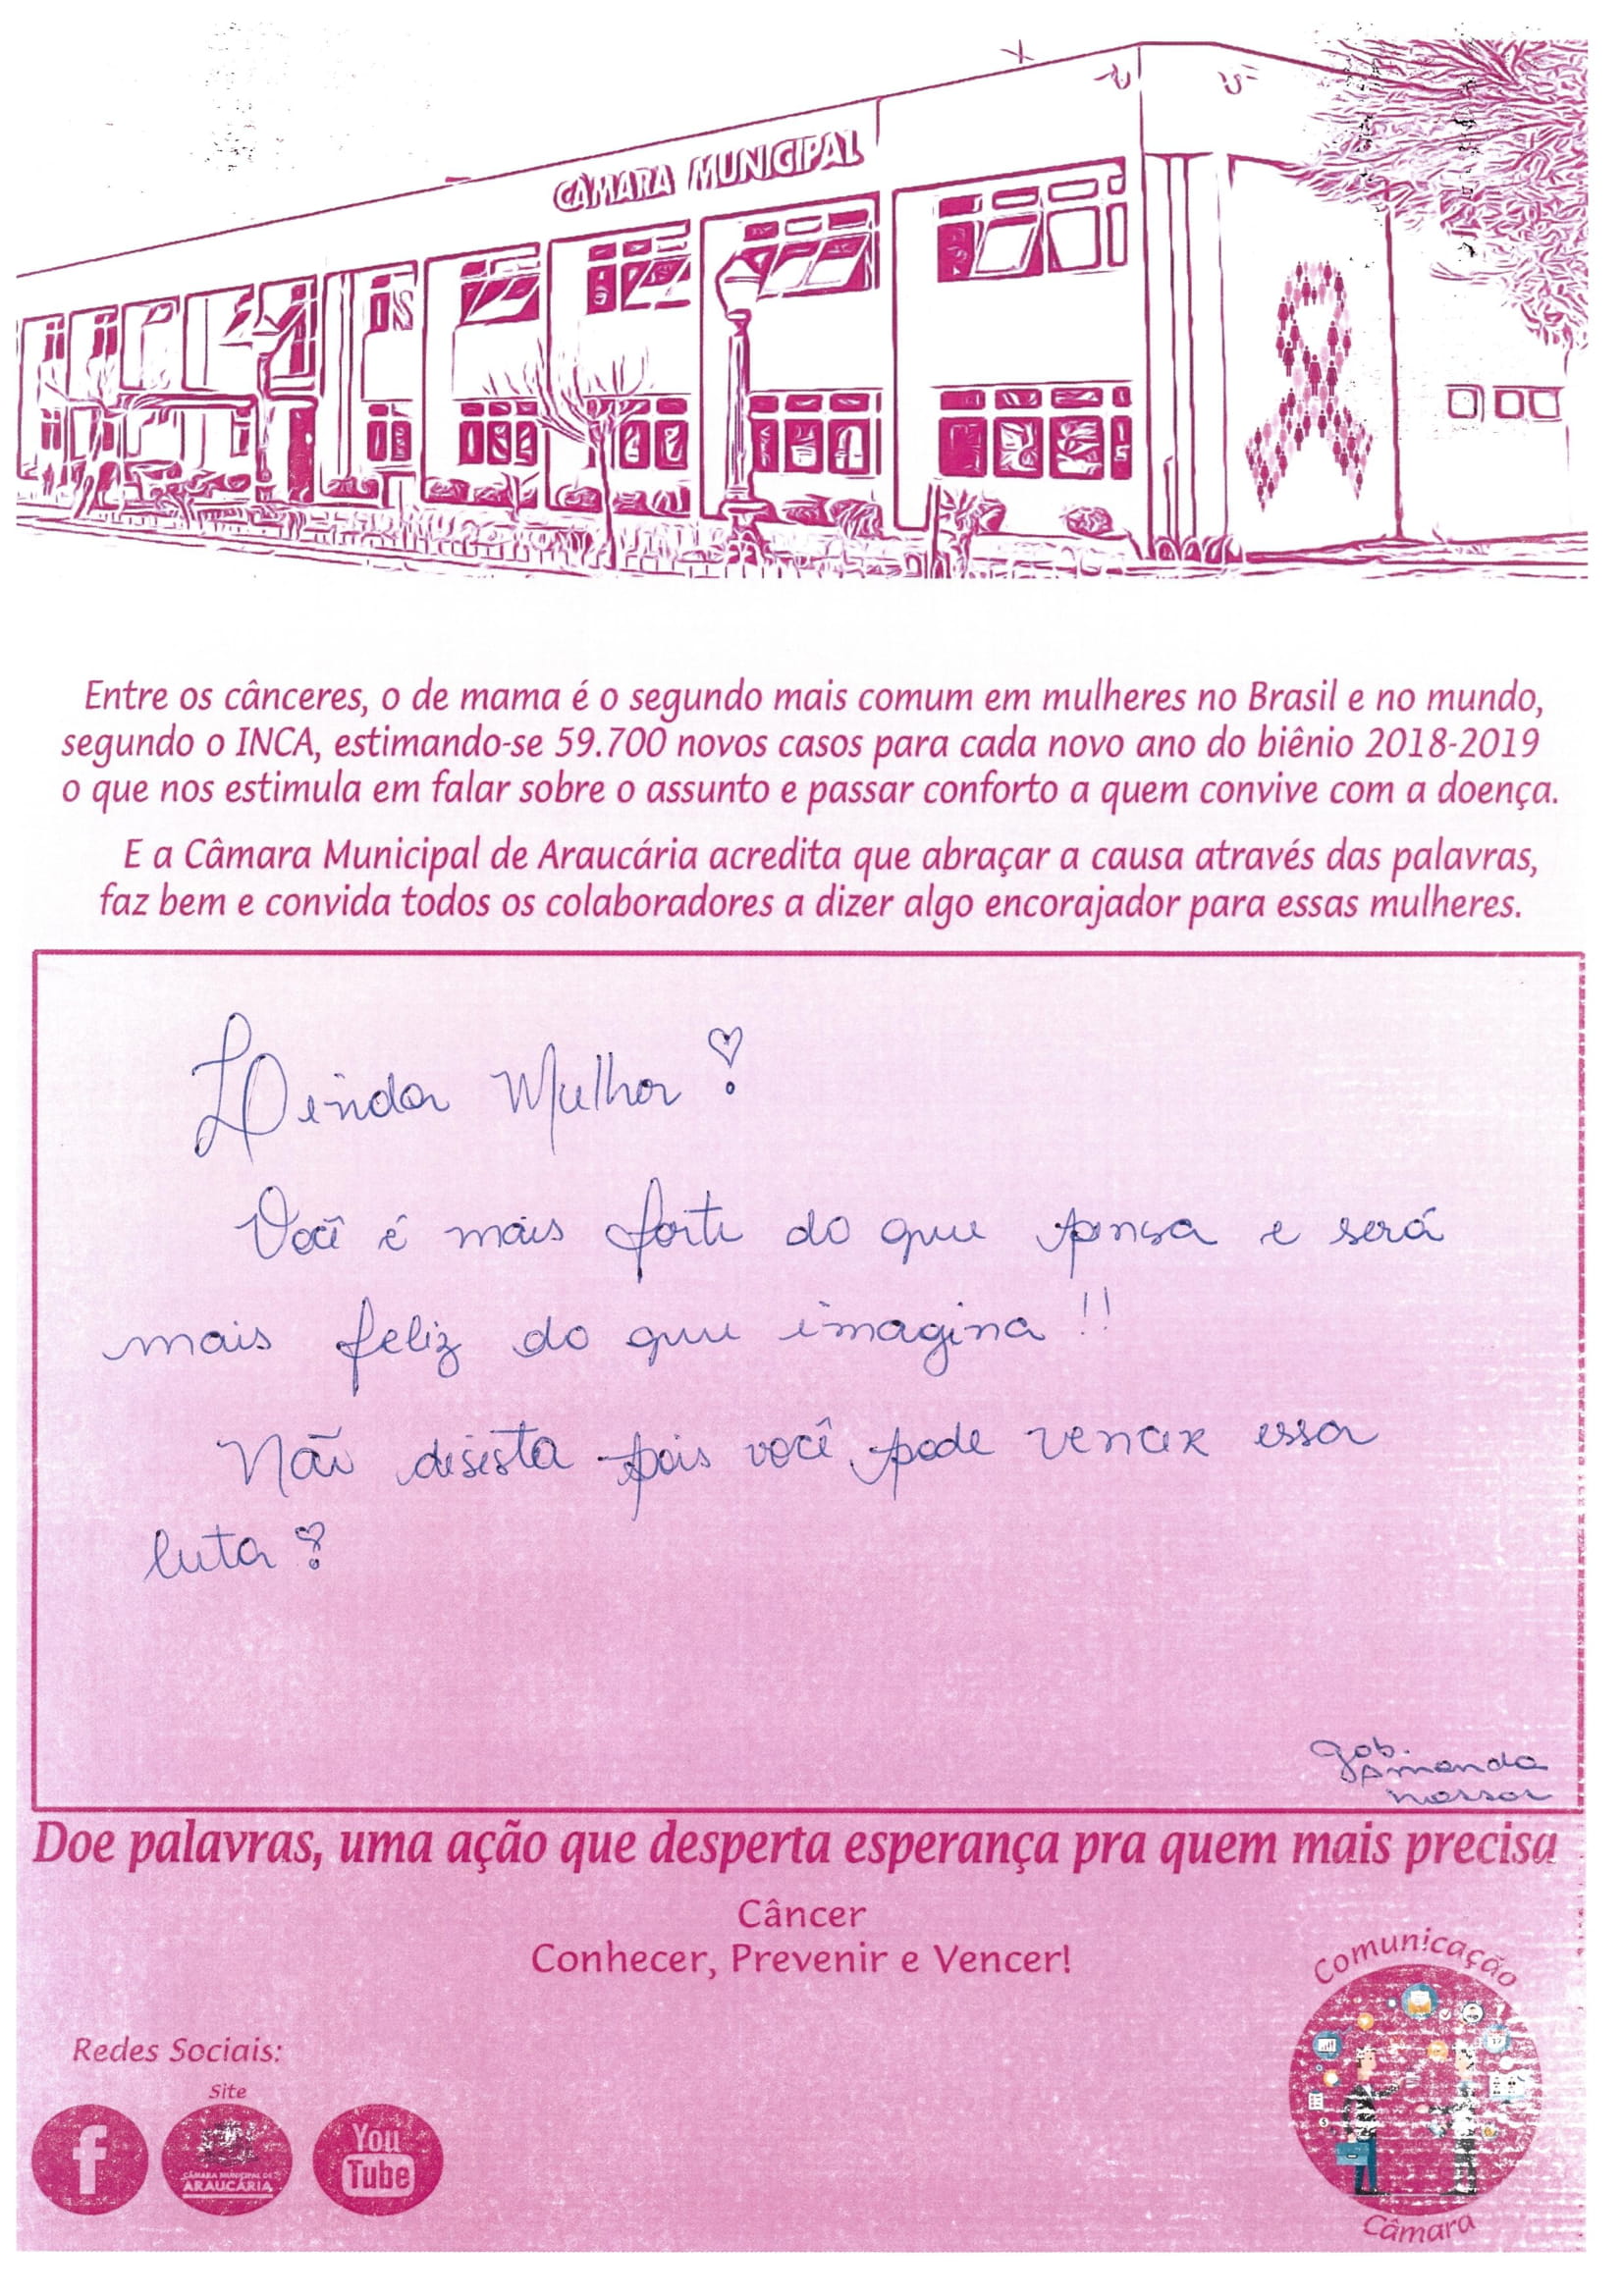 CÂMARA MUNICIPAL
Entre os cânceres, o de mama é o segundo mais comum em mulheres no Brasil e no mundo,
segundo o INCA, estimando-se 59.700 novos casos para cada novo ano do biênio 2018-2019
o que nos estimula em falar sobre o assunto e passar conforto a quem convive com a doença.
E a Câmara Municipal de Araucária acredita que abraçar a causa através das palavras,
faz bem e convida todos os colaboradores a dizer algo encorajador para essas mulheres.
Linda Mulher!
Você é mais forte do que pensa e será
mais feliz do que imagina!!
Não desista pois você pode vencer essa
luta!
Gab.
Amanda
Nassar
Doe palavras, uma ação que desperta esperança pra quem mais precisa
Câncer
Conhecer, Prevenir e Vencer!
Comunicação
Câmara
Redes Sociais:
Site
f
CÂMARA MUNICIPAL DE
ARAUCÁRIA
You
Tube